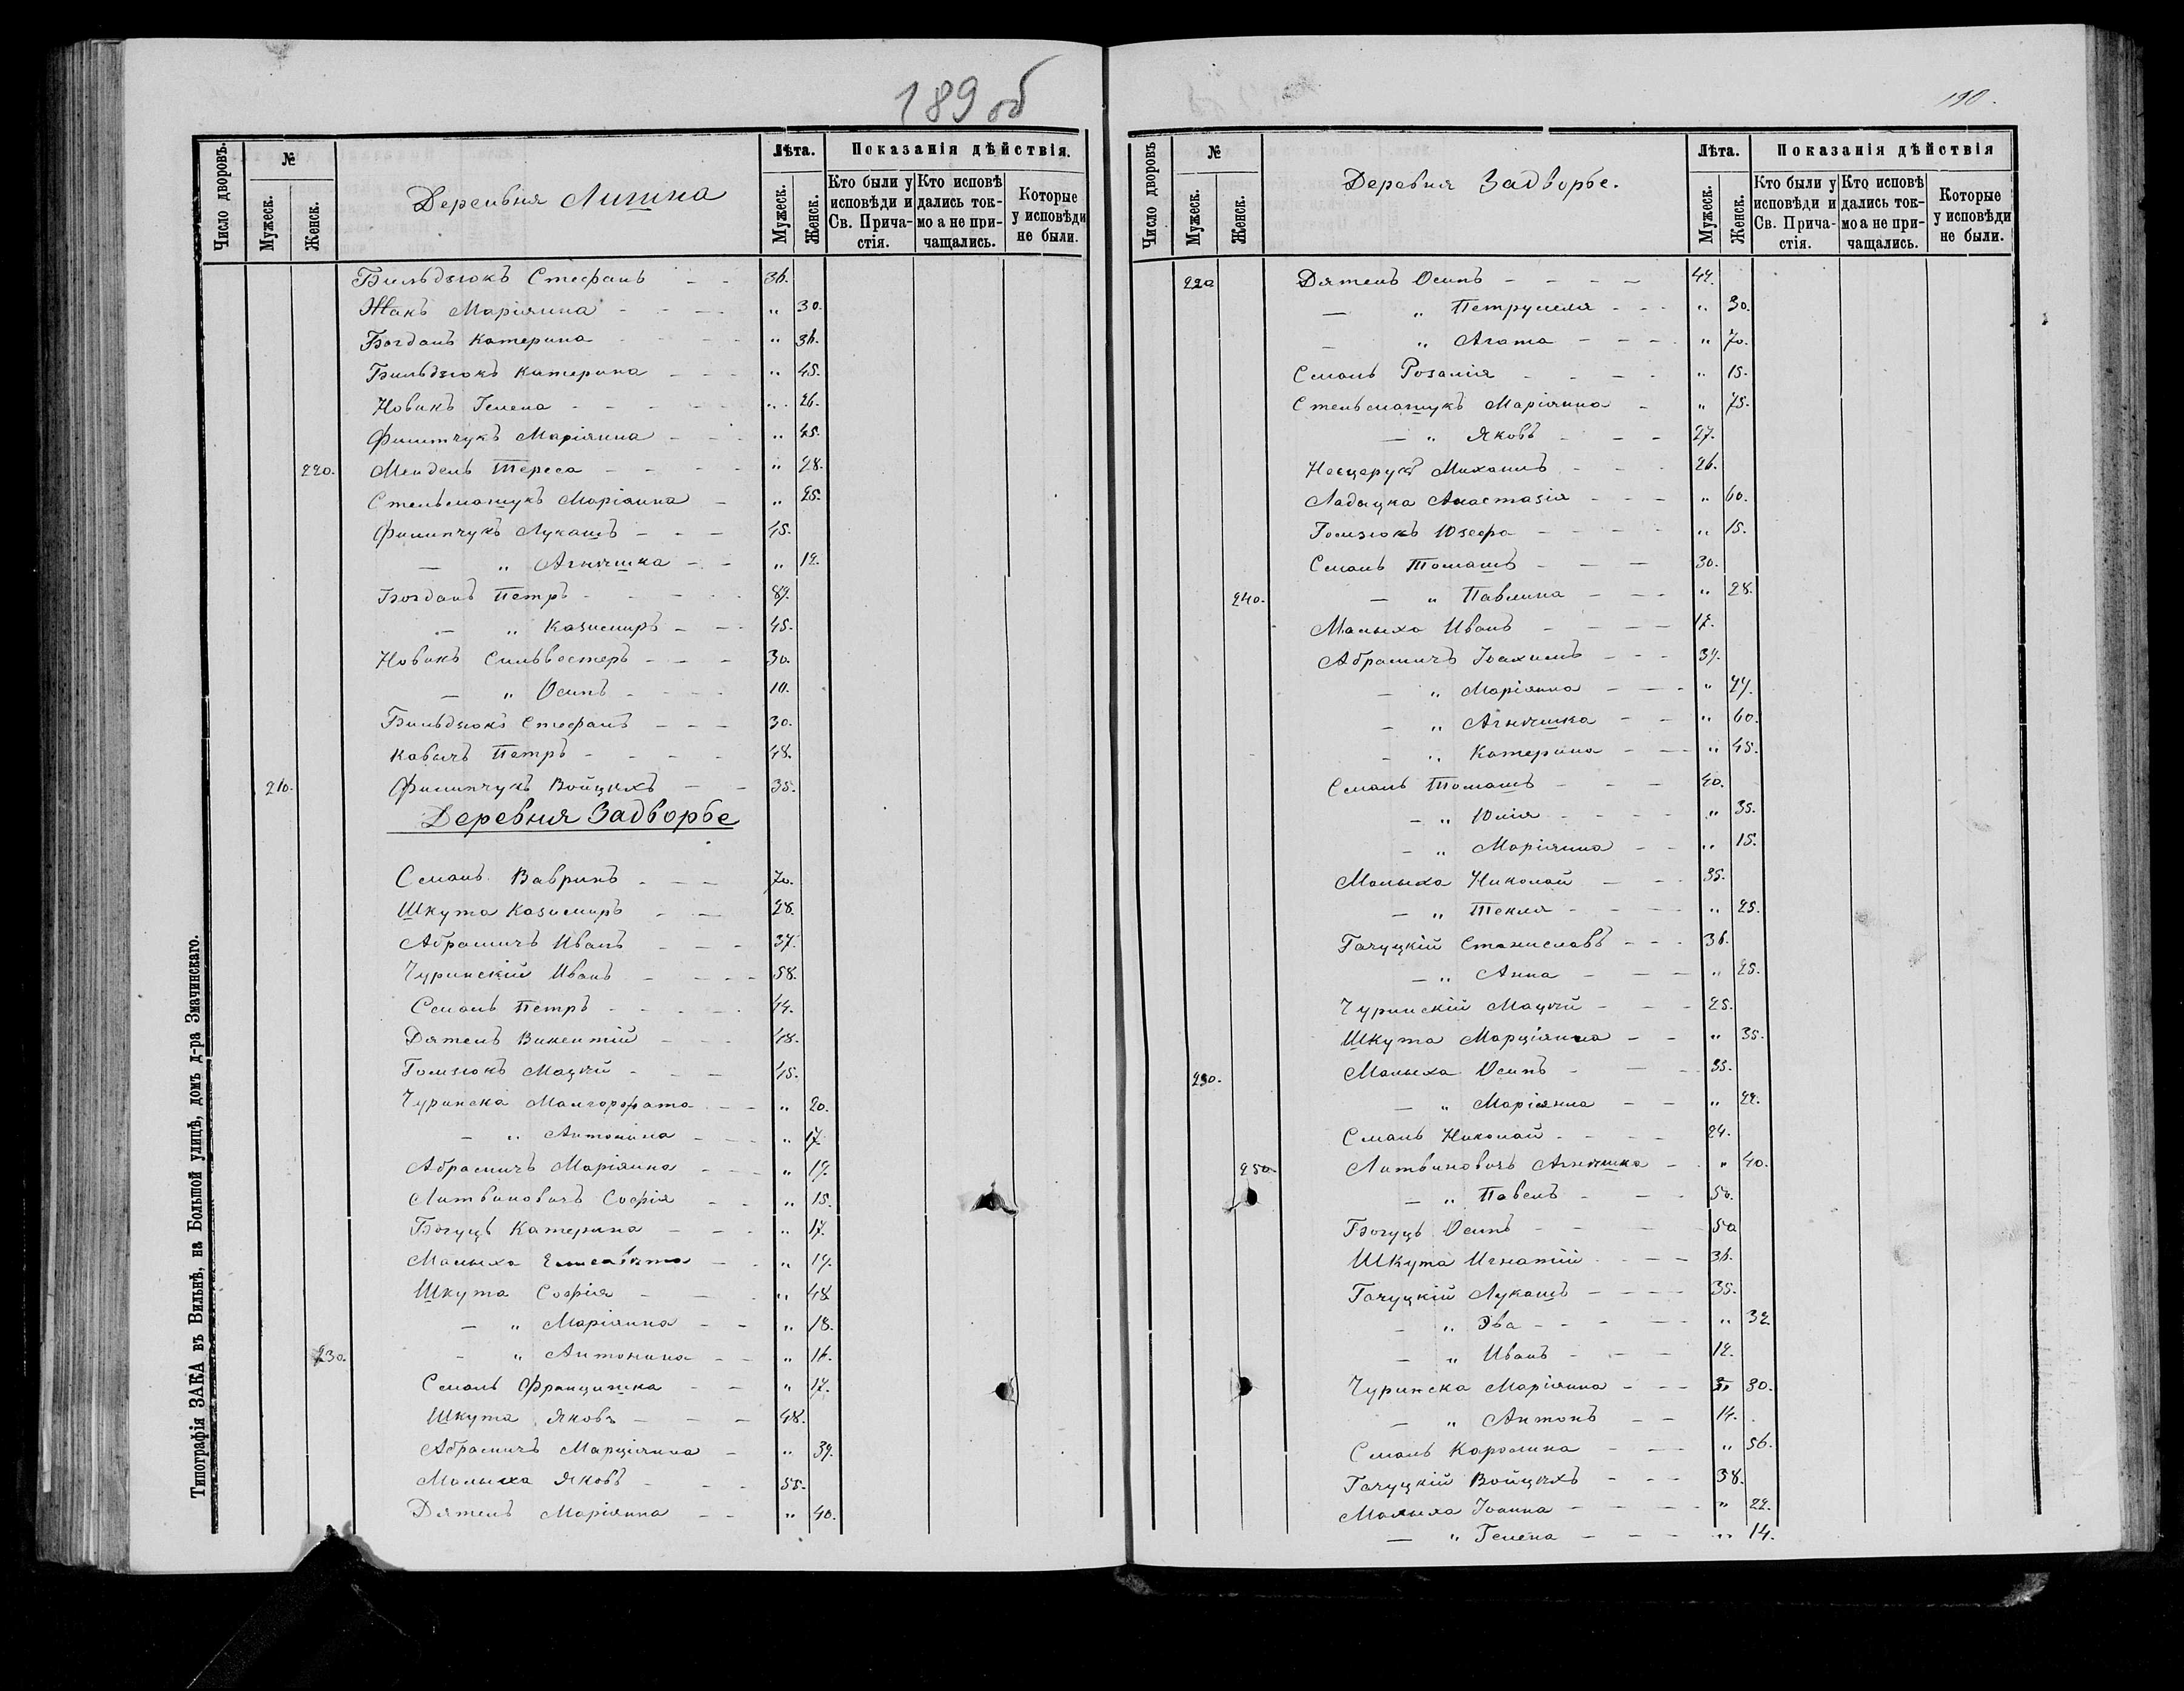 189 об
Число дворовъ.
№
Мужеск.
Женск.
Деревня Липина
Лѣта.
Мужеск.
Женск.
Показанія дѣйствія.
Кто были у исповѣди и Св. Причастія.
Кто исповѣдались токмо а не причащались.
Которые у исповѣди не были.
Бильдзюкъ Стефанъ - - 36.
Жакъ Маріянна - - - " 30.
Богданъ Катерина - - - " 36.
Бильдзюкъ Катерина - - - " 45.
Новикъ Гелена - - - - " 26.
Филипчукъ Маріянна - - - " 45.
220. Мендель Тереса - - - - " 28.
Стельмашукъ Маріянна - " 25.
Филипчукъ Лукашъ - - - 45.
— " Агнѣшка - - " 12.
Богданъ Петръ - - - - 89.
— " Казимиръ - - - 45.
Новикъ Сильвестеръ - - - 30.
— " Осипъ - - - - 10.
Бильдзюкъ Стефанъ - - - 30.
Кавычъ Петръ - - - - 48.
210. Филипчукъ Войцѣхъ - - 35.
Деревня Задворье
Смаль Вавринъ - - - 70.
Шкута Казимиръ - - 28.
Абрамичъ Иванъ - - - 37.
Чуринскій Иванъ - - - - 58.
Смаль Петръ - - - - - 44.
Дятелъ Викентій - - - 48.
Гользюкъ Мацѣй - - - 45.
Чуринска Малгоржата - - " 20.
— " Антонина - - - " 17.
Абрамичъ Маріянна - - - " 19.
Литвиновичъ Софія - - " 15.
Богуцъ Катерина - - - " 17.
Малыха Елисавета - - " 19.
Шкута Софія - - - " 48.
— " Маріянна - - " 18.
230. - " Антонина - - " 16.
Смаль Францишка - - " 17.
Шкута Яковъ - - - 48.
Абрамичъ Марціянна - " 39.
Малыха Яковъ - - - 55.
Дятелъ Маріянна - - " 40.
Типографія ЗАКА въ Вильнѣ, на Большой улицѣ, домъ д-ра Змачинскаго.
190.
Число дворовъ
№
Мужеск.
Женск.
Деревня Задворье.
Лѣта.
Мужеск.
Женск.
Показанія дѣйствія
Кто были у исповѣди и Св. Причастія.
Кто исповѣдались токмо а не причащались.
Которые у исповѣди не были.
220 Дятелъ Осипъ - - - - 42.
— " Петрунеля - - - " 30.
— " Агата - - - " 70.
Смаль Розалія - - - - " 15.
Стельмашукъ Маріянна - " 75.
— " Яковъ - - - 27.
Несцерукъ Михаилъ - - - 26.
Ладыцка Анастазія - - - " 60.
Гользюкъ Юзефа - - - - " 15.
Смаль Томашъ - - - 30.
240. — " Павлина - - - " 28.
Малыха Иванъ - - - - 17.
Абрамичъ Іоахимъ - - - 39.
— " Маріянна - - - " 27.
— " Агнѣшка - - " 60.
— " Катерина - - - " 45.
Смаль Томашъ - - - 40.
- " Юлія - - - - " 35.
- " Маріянна - - " 15.
Малыха Николай - - - 35.
- " Текля - - - - " 25.
Гачуцкій Станиславъ - - - 36.
- " Анна - - - " 25.
Чуринскій Мацѣй - - - 25.
Шкута Марціянна - - " 35.
230. Малыха Осипъ - - - 35.
— " Маріянна - - " 22.
Смаль Николай - - - - 24.
250 Литвиновичъ Агнѣшка - - " 40.
— " Павелъ - - - 50.
Богуцъ Осипъ - - - - 50
Шкута Игнатій - - - 36.
Гачуцкій Лукашъ - - - - 35.
— " Эва - - - - - " 32
— " Иванъ - - - 12.
Чуринска Маріянна - - - " 30.
— " Антонъ - - 14.
Смаль Каролина - - - " 56.
Гачуцкій Войцѣхъ - - - 38.
Малыха Іоанна - - - - " 22.
— " Гелена - - - " 14.